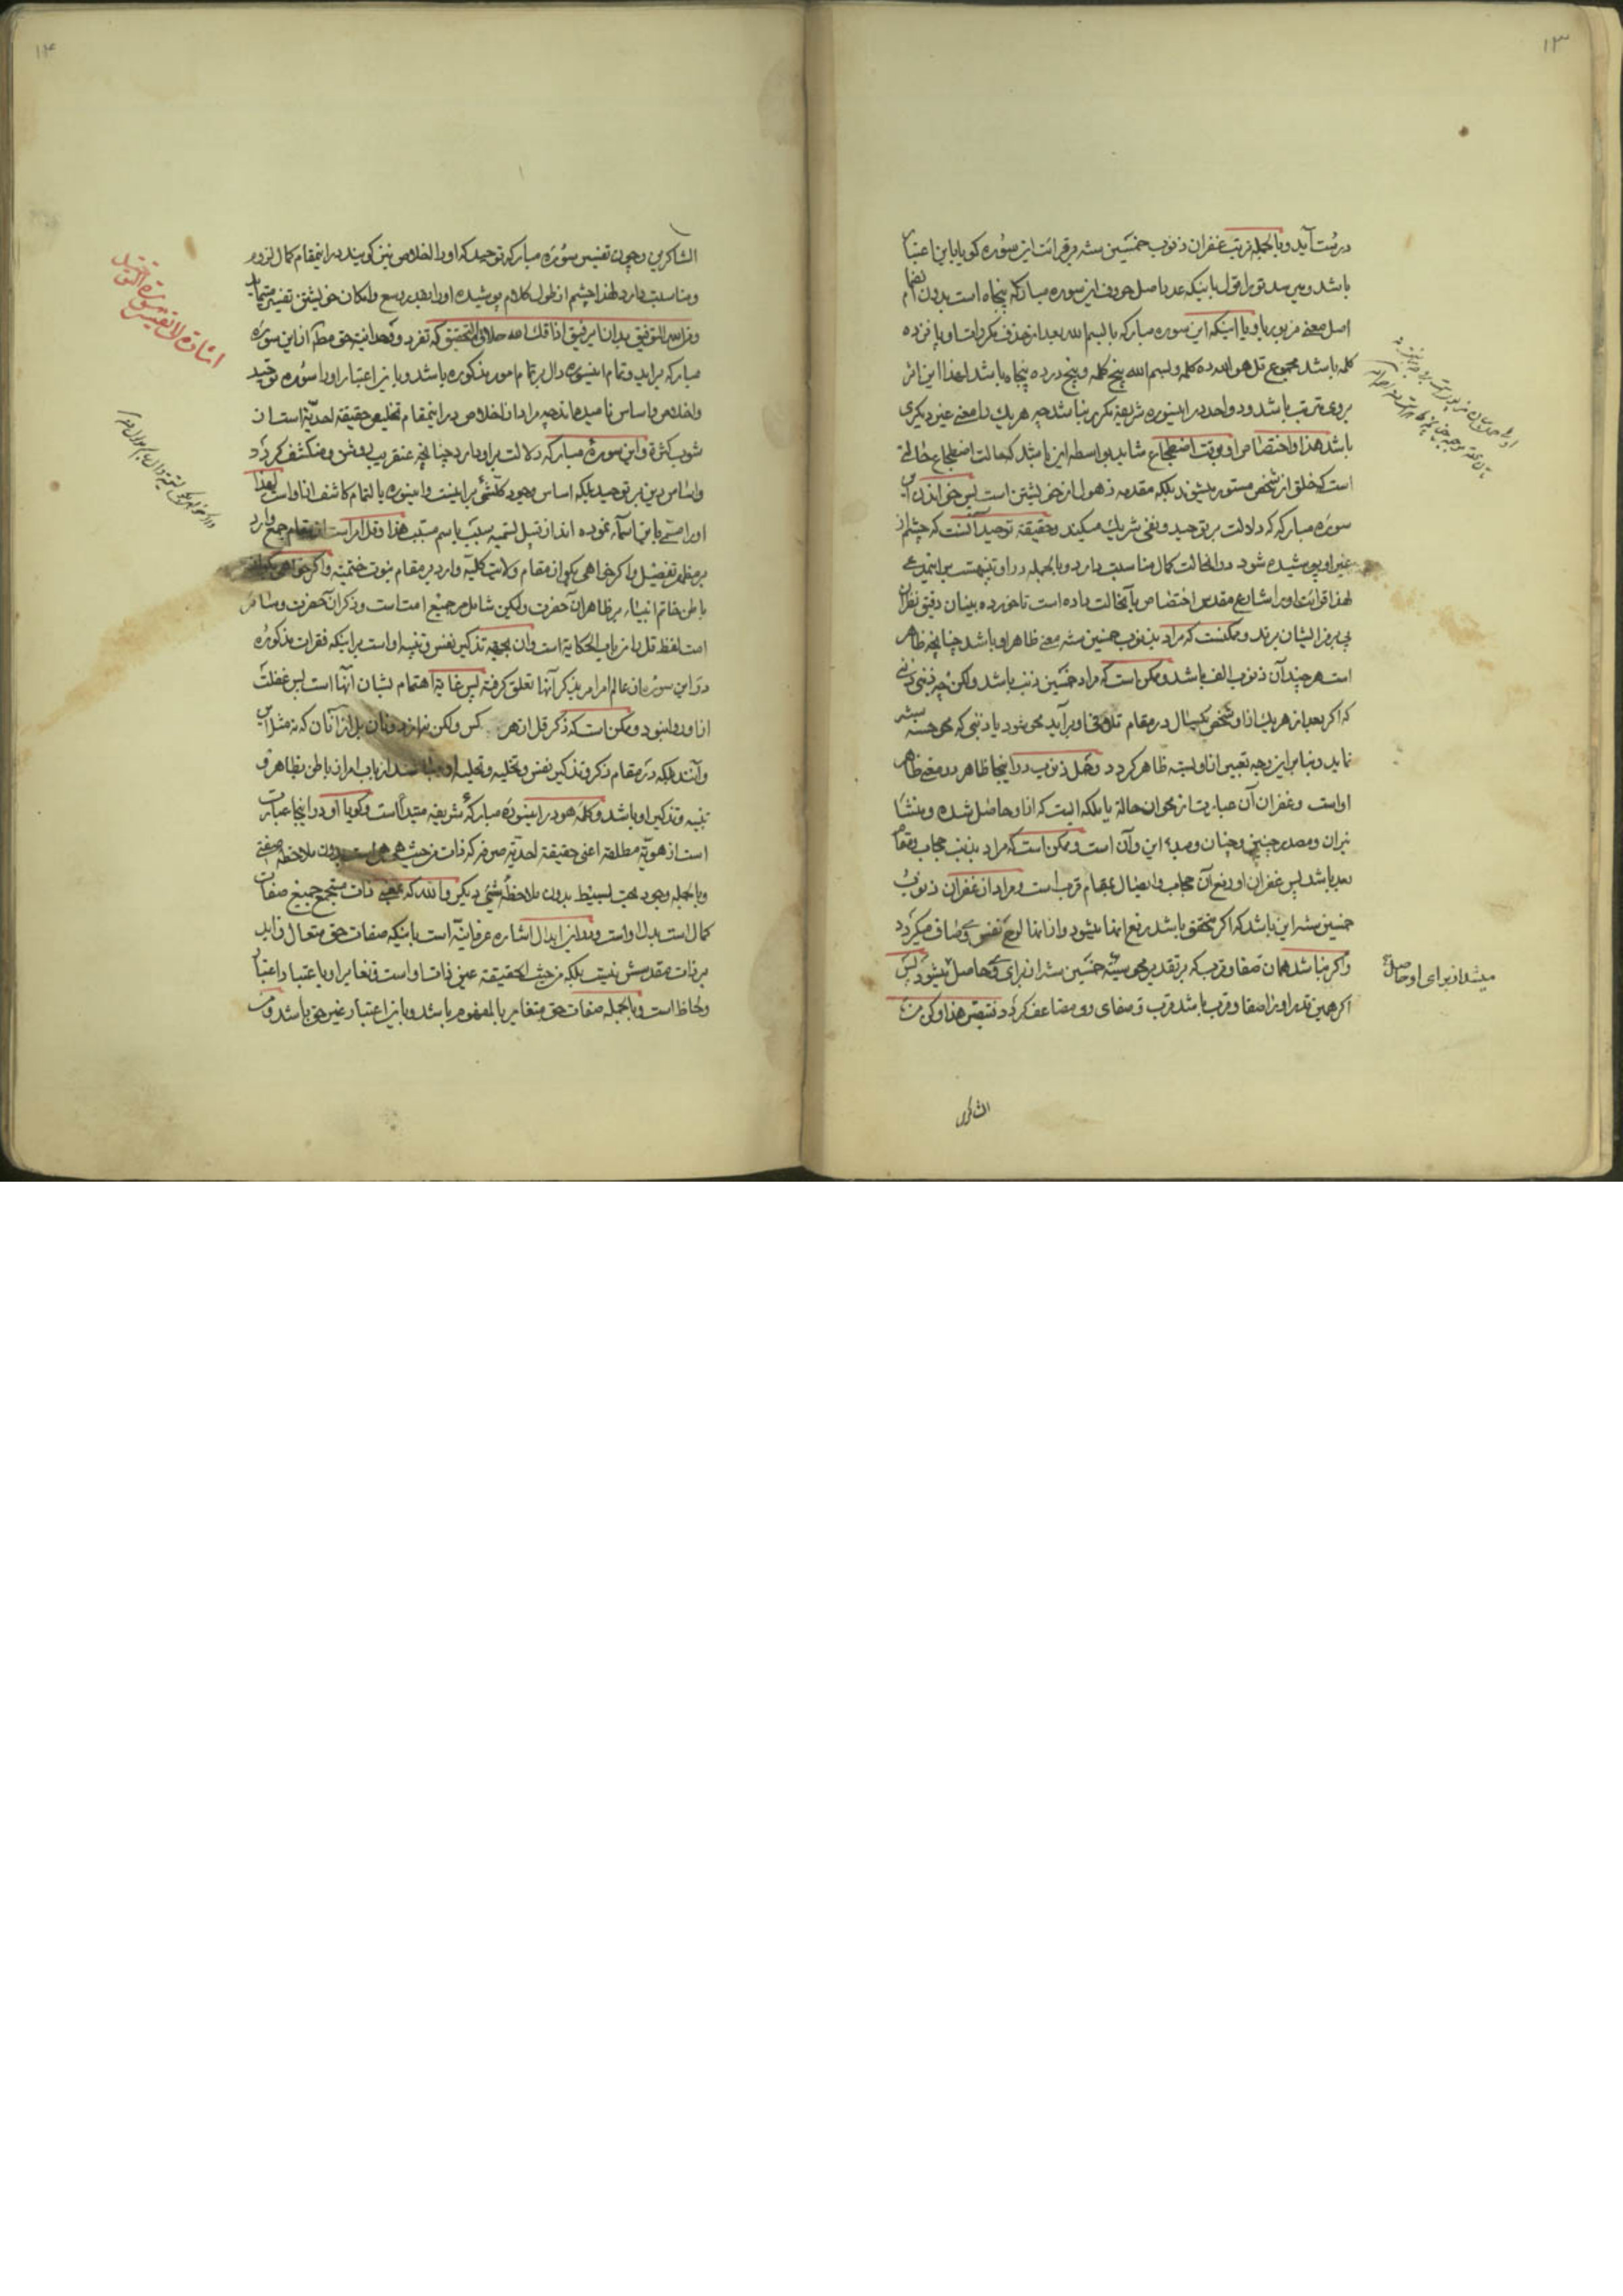 ١٣
درست آید و بالجمله ترتب غفران ذنوب خمسین سنه بر قرائت این سوره کویا باین اعتبار
باشد و می سد تو را قول باینکه عدد اصل حروف این سوره مبارکه پنجاه است بدون انضمام
اصل معنی مزبور باو یا اینکه این سوره مبارکه با بسم الله بعد از حذف مکررات او پانزده
کلمه باشد مجموع قل هو الله ده کلمه و بسم الله پنج کلمه و پنج در ده پنجاه باشد لهذا این اثر
بر وی مترتب باشد و واحد در اینسوره شریفه مکرر نباشد چه هریک را معنی غیر دیکری
باشد هذا و اختصاص او بوقت اضطجاع شاید بواسطه این باشد که حالت اضطجاع حالتی
است که خلق از شخص مستور میشوند بلکه مقدمه ذهول از خویشتن است پس خواندن این
سوره مبارکه که دلالت بر توحید و نفی شریک میکند و حقیقة توحید آنست که چشم از
غیر او پوشیده شود در انحالت کمال مناسبت دارد و بالجمله در او تنبیهت بر اینمدعی
لهذا قرائت او را شارع مقدس اختصاص بآنحالت داده است تا خورده بینان دقیق نظران
پی برمز ایشان برند و ممکنست که مراد بذنوب خمسین سنه معنی ظاهر او باشد چنانچه ظاهر
است هر چند آن ذنوب الف باشد و ممکن است که مراد خمسین ذنب باشد ولکن چه ذنبی ذنبی
که اکر بعد از هر یک از او شخص یکسال در مقام تلافی او برآید محو شود یا ذنبی که محو حسنه سنه
نماید و بنا بر این وجه تعبیر از او بسنه ظاهر کردد و حمل ذنوب در اینجا ظاهر بر معنی ظاهر
او است و غفران آن عبارت از محو آن حالة یا ملکه ایست که از او حاصل شده و منشا
نیران و مصدر چنین و چنان و مبدء این و آن است و ممکن است که مراد بذنب حجاب و مقام
بعد باشد پس غفران او رفع آن حجاب و ایصال بمقام قرب است و مراد از غفران ذنوب
خمسین سنه این باشد که اکر متحقق باشد رفع انها میشود و از انها لوح نفس وی صاف میکردد
و اکر نباشد همان صفا و قرب که بر تقدیر محو سیئه خمسین سنه از برای وی حاصل میشود پس
اکر همین قدر او را صفا و قرب باشد قرب و صفای وی مضاعف کردد تبصر هذا و کن من
میشد از برای او حاصل
الشاکرین
١٤
الشاکرین و چون تفسیر سوره مبارکه توحید که او را اخلاص نیز کویند در اینمقام کمال لزوم
و مناسبت دارد لهذا چشم از طول کلام پوشیده او را بقدر وسع و امکان خویشتن تفسیر مینماید
و من الله التوفیق بدان ای رفیق اذاقک الله حلاوة التحقیق که تفرد و وحدانیة حق مطلق از این سوره
مبارکه برآید و تمام اینسوره دال بر تمام امور مذکوره باشد و باین اعتبار او را سوره توحید
و اخلاص و اساس نامیده اند چه مراد از اخلاص در اینمقام تخلیص حقیقة احدیة است از
شوب کثرة و این سوره مبارکه دلالت بر او دارد چنانچه عنقریب روشن و منکشف کردد
و اساس دین بر توحید بلکه اساس وجود کلشئ بر اینست و اینسوره بالتمام کاشف از او است لهذا
او را مسمی باین اسماء نموده اند از قبیل تسمیه سبب باسم مسبب هذا و قل امر است از مقام جمع وارد
بر مظهر تفصیل و اکر خواهی بکو از مقام ولایت کلیه وارد بر مقام نبوت ختمیه و اکر خواهی بکو از
باطن خاتم انبیاء بر ظاهر آنحضرت ولکن شامل بر جمیع امت است و ذکر آنحضرت و سایر
امت لفظ قل را از باب الحکایة است و ان بجهه تذکیر نفس و تنبیه او است بر اینکه فقرات مذکوره
در این سوره از عالم امر امر بذکر آنها تعلق کرفته پس غایة اهتمام بشان آنها است پس غفلت
از او روا نبود و ممکن است که ذکر قل از هر کس ولکن نه از و نان بل از آنان که نه مثل این
و آنند بلکه در مقام ذکر و تذکیر نفس و تخلیه و تحلیه او از باب امر از باطن بظاهر و
تنبیه و تذکیر او باشد و کلمه هو در اینسوره مبارکه شریفه مبتدا است و کویا او در اینجا عبارت
است از هویة مطلقه اعنی حقیقة احدیة صرفه که ذات من حیث هی هی است بدون ملاحظه صفتی
و بالجمله وجود بحت بسیط بدون ملاحظه شئی دیکر و الله که بمعنی ذات مستجمع جمیع صفات
کمال است بدل او است و در این ابدال اشاره عرفانیه است باینکه صفات حق متعال زاید
بر ذات مقدسش نیست بلکه من حیث الحقیقة عین ذات او است و تغایر او باعتبار اعتبار
و لحاظ است و بالجمله صفات حق متغایر بالمفهوم باشد و باین اعتبار غیر حق باشد و من
اشارة الی تفسیر سورة التوحید